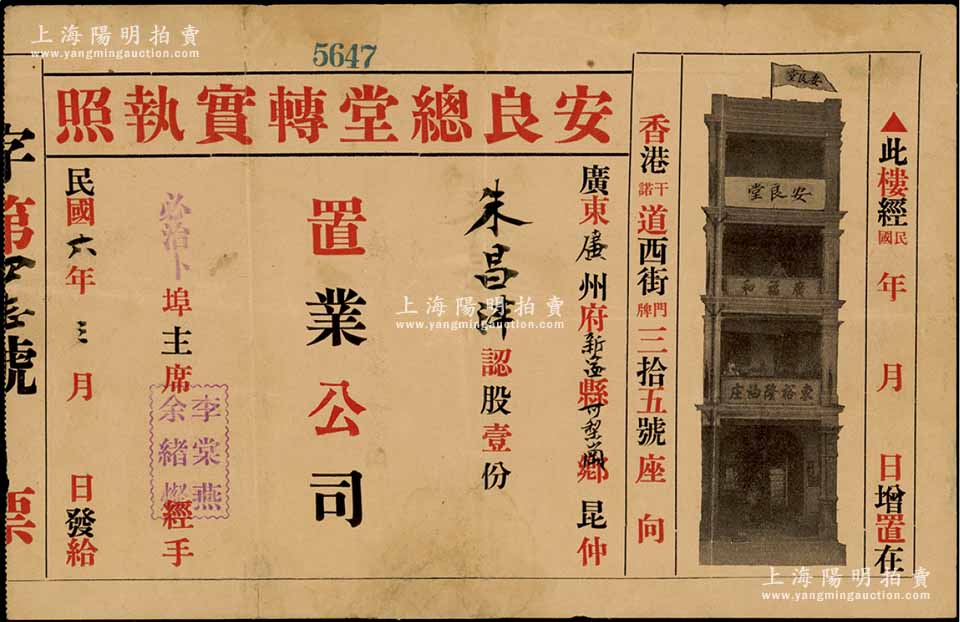 5647
安良總堂轉實執照
▲此樓經民國 年 月 日增置在
安良堂
安良堂
廣福和
東裕隆油庄
香港干諾道西街門牌三拾五號座向
廣東廣州府新甯縣 鄉昆仲
朱昌 認股壹份
置業公司
必治卜埠主席李棠燕余緒燦經手
民國六年三月 日發給
字第 號 票
上海陽明拍賣
www.yangmingauction.com
上海陽明拍賣
www.yangmingauction.com
上海陽明拍賣
www.yangmingauction.com